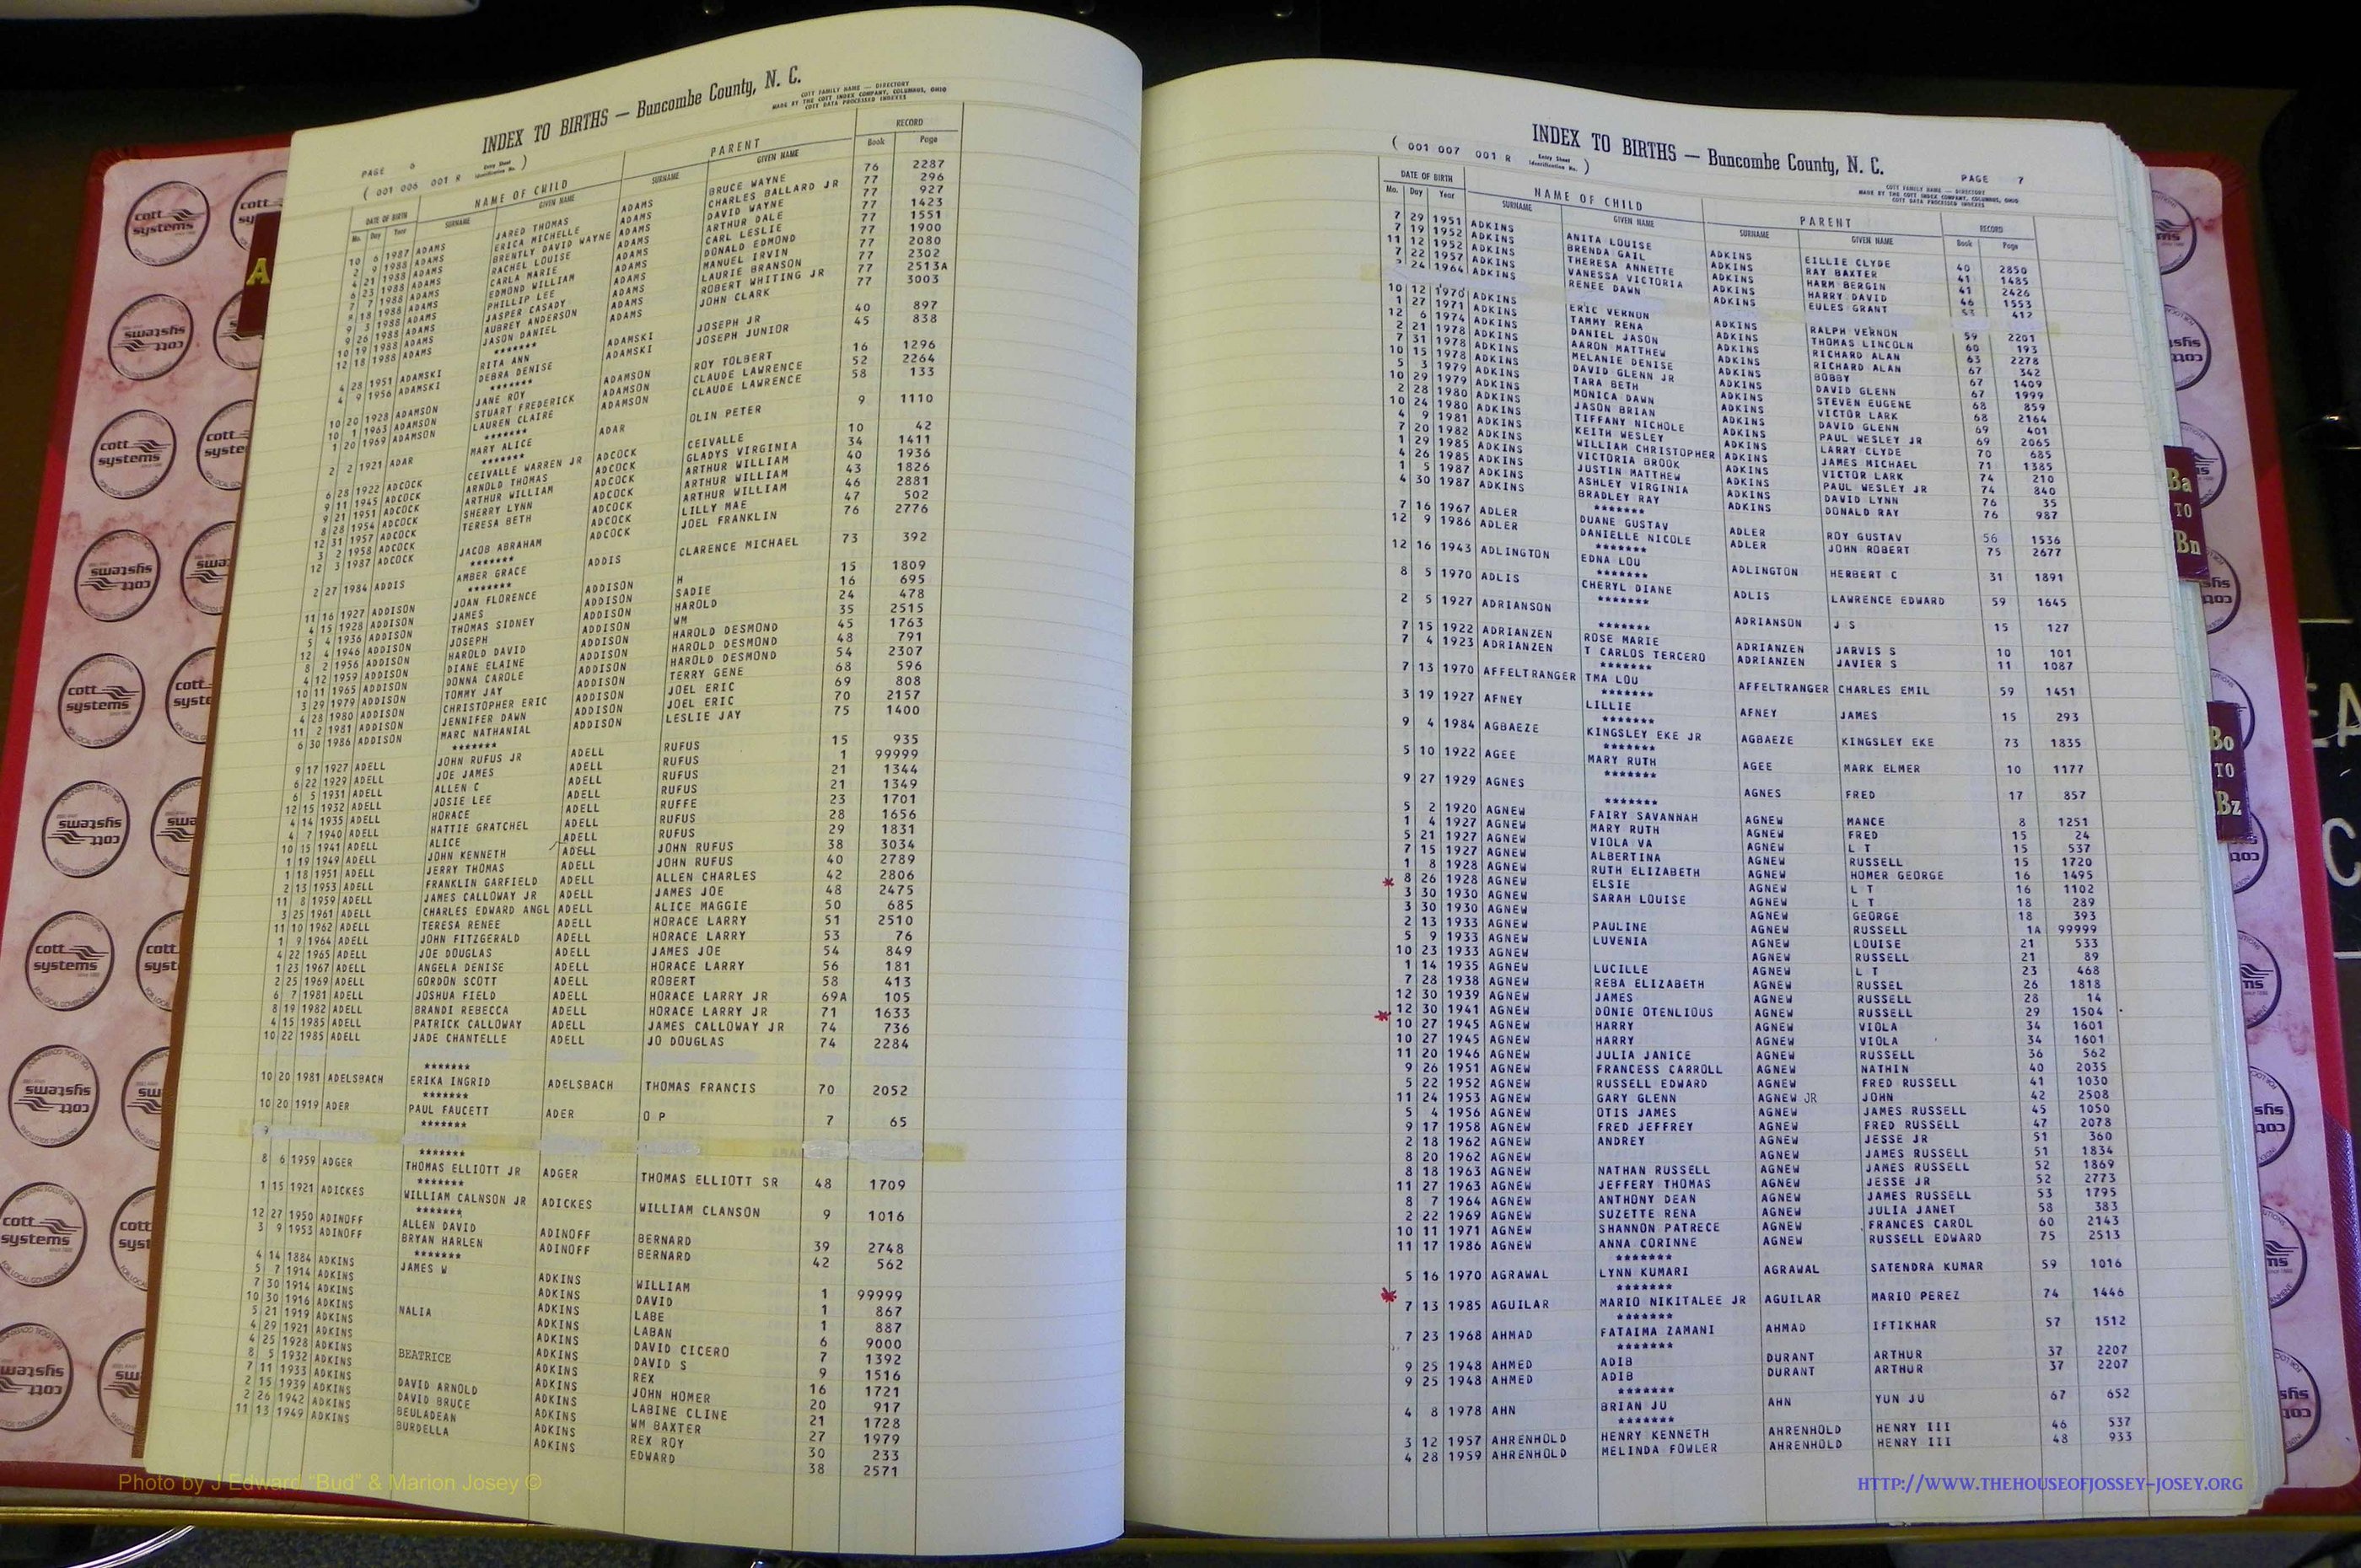 INDEX TO BIRTHS — Buncombe County, N. C.
COTT FAMILY NAME — DIRECTORY
MADE BY THE COTT INDEX COMPANY, COLUMBUS, OHIO
COTT DATA PROCESSED INDEXES
PAGE 6
( 001 006 001 R Entry Sheet Identification No. )
DATE OF BIRTH NAME OF CHILD PARENT RECORD
Mo. Day Year SURNAME GIVEN NAME SURNAME GIVEN NAME Book Page
10 6 1987 ADAMS JARED THOMAS ADAMS BRUCE WAYNE 76 2287
2 9 1988 ADAMS ERICA MICHELLE ADAMS CHARLES BALLARD JR 77 296
4 21 1988 ADAMS BRENTLY DAVID WAYNE ADAMS DAVID WAYNE 77 927
6 23 1988 ADAMS RACHEL LOUISE ADAMS ARTHUR DALE 77 1423
7 7 1988 ADAMS CARLA MARIE ADAMS CARL LESLIE 77 1551
8 18 1988 ADAMS EDMOND WILLIAM ADAMS DONALD EDMOND 77 1900
9 3 1988 ADAMS PHILLIP LEE ADAMS MANUEL IRVIN 77 2080
9 26 1988 ADAMS JASPER CASADY ADAMS LAURIE BRANSON 77 2302
10 19 1988 ADAMS AUBREY ANDERSON ADAMS ROBERT WHITING JR 77 2513A
12 18 1988 ADAMS JASON DANIEL ADAMS JOHN CLARK 77 3003
*******
4 28 1951 ADAMSKI RITA ANN ADAMSKI JOSEPH JR 40 897
4 9 1956 ADAMSKI DEBRA DENISE ADAMSKI JOSEPH JUNIOR 45 838
*******
10 20 1928 ADAMSON JANE ROY ADAMSON ROY TOLBERT 16 1296
10 1 1963 ADAMSON STUART FREDERICK ADAMSON CLAUDE LAWRENCE 52 2264
1 20 1969 ADAMSON LAUREN CLAIRE ADAMSON CLAUDE LAWRENCE 58 133
*******
2 2 1921 ADAR MARY ALICE ADAR OLIN PETER 9 1110
*******
6 28 1922 ADCOCK CEIVALLE WARREN JR ADCOCK CEIVALLE 10 42
9 11 1945 ADCOCK ARNOLD THOMAS ADCOCK GLADYS VIRGINIA 34 1411
9 21 1951 ADCOCK ARTHUR WILLIAM ADCOCK ARTHUR WILLIAM 40 1936
8 28 1954 ADCOCK SHERRY LYNN ADCOCK ARTHUR WILLIAM 43 1826
12 31 1957 ADCOCK TERESA BETH ADCOCK ARTHUR WILLIAM 46 2881
3 2 1958 ADCOCK ADCOCK LILLY MAE 47 502
12 3 1987 ADCOCK JACOB ABRAHAM ADCOCK JOEL FRANKLIN 76 2776
*******
2 27 1984 ADDIS AMBER GRACE ADDIS CLARENCE MICHAEL 73 392
*******
11 16 1927 ADDISON JOAN FLORENCE ADDISON H 15 1809
4 15 1928 ADDISON JAMES ADDISON SADIE 16 695
5 4 1936 ADDISON THOMAS SIDNEY ADDISON HAROLD 24 478
12 4 1946 ADDISON JOSEPH ADDISON WM 35 2515
8 2 1956 ADDISON HAROLD DAVID ADDISON HAROLD DESMOND 45 1763
4 12 1959 ADDISON DIANE ELAINE ADDISON HAROLD DESMOND 48 791
10 11 1965 ADDISON DONNA CAROLE ADDISON HAROLD DESMOND 54 2307
3 29 1979 ADDISON TOMMY JAY ADDISON TERRY GENE 68 596
4 28 1980 ADDISON CHRISTOPHER ERIC ADDISON JOEL ERIC 69 808
11 2 1981 ADDISON JENNIFER DAWN ADDISON JOEL ERIC 70 2157
6 30 1986 ADDISON MARC NATHANIAL ADDISON LESLIE JAY 75 1400
*******
9 17 1927 ADELL JOHN RUFUS JR ADELL RUFUS 15 935
6 22 1929 ADELL JOE JAMES ADELL RUFUS 1 99999
6 5 1931 ADELL ALLEN C ADELL RUFUS 21 1344
12 15 1932 ADELL JOSIE LEE ADELL RUFUS 21 1349
4 14 1935 ADELL HORACE ADELL RUFFE 23 1701
4 7 1940 ADELL HATTIE GRATCHEL ADELL RUFUS 28 1656
10 15 1941 ADELL ALICE ADELL RUFUS 29 1831
1 19 1949 ADELL JOHN KENNETH ADELL JOHN RUFUS 38 3034
1 18 1951 ADELL JERRY THOMAS ADELL JOHN RUFUS 40 2789
2 13 1953 ADELL FRANKLIN GARFIELD ADELL ALLEN CHARLES 42 2806
11 8 1959 ADELL JAMES CALLOWAY JR ADELL JAMES JOE 48 2475
3 25 1961 ADELL CHARLES EDWARD ANGL ADELL ALICE MAGGIE 50 685
11 10 1962 ADELL TERESA RENEE ADELL HORACE LARRY 51 2510
1 9 1964 ADELL JOHN FITZGERALD ADELL HORACE LARRY 53 76
4 22 1965 ADELL JOE DOUGLAS ADELL JAMES JOE 54 849
1 23 1967 ADELL ANGELA DENISE ADELL HORACE LARRY 56 181
2 25 1969 ADELL GORDON SCOTT ADELL ROBERT 58 413
6 7 1981 ADELL JOSHUA FIELD ADELL HORACE LARRY JR 69A 105
8 19 1982 ADELL BRANDI REBECCA ADELL HORACE LARRY JR 71 1633
4 15 1985 ADELL PATRICK CALLOWAY ADELL JAMES CALLOWAY JR 74 736
10 22 1985 ADELL JADE CHANTELLE ADELL JO DOUGLAS 74 2284
*******
10 20 1981 ADELSBACH ERIKA INGRID ADELSBACH THOMAS FRANCIS 70 2052
*******
10 20 1919 ADER PAUL FAUCETT ADER O P 7 65
*******
*******
8 6 1959 ADGER THOMAS ELLIOTT JR ADGER THOMAS ELLIOTT SR 48 1709
*******
1 15 1921 ADICKES WILLIAM CALNSON JR ADICKES WILLIAM CLANSON 9 1016
*******
12 27 1950 ADINOFF ALLEN DAVID ADINOFF BERNARD 39 2748
3 9 1953 ADINOFF BRYAN HARLEN ADINOFF BERNARD 42 562
*******
4 14 1884 ADKINS JAMES W ADKINS WILLIAM 1 99999
5 7 1914 ADKINS ADKINS DAVID 1 867
7 30 1914 ADKINS ADKINS LABE 1 887
10 30 1916 ADKINS NALIA ADKINS LABAN 6 9000
5 21 1919 ADKINS ADKINS DAVID CICERO 7 1392
4 29 1921 ADKINS ADKINS DAVID S 9 1516
4 25 1928 ADKINS BEATRICE ADKINS REX 16 1721
8 5 1932 ADKINS ADKINS JOHN HOMER 20 917
7 11 1933 ADKINS DAVID ARNOLD ADKINS LABINE CLINE 21 1728
2 15 1939 ADKINS DAVID BRUCE ADKINS WM BAXTER 27 1979
2 26 1942 ADKINS BEULADEAN ADKINS REX ROY 30 233
11 13 1949 ADKINS BURDELLA ADKINS EDWARD 38 2571
INDEX TO BIRTHS — Buncombe County, N. C.
( 001 007 001 R Entry Sheet Identification No. )
PAGE 7
COTT FAMILY NAME — DIRECTORY
MADE BY THE COTT INDEX COMPANY, COLUMBUS, OHIO
COTT DATA PROCESSED INDEXES
DATE OF BIRTH NAME OF CHILD PARENT RECORD
Mo. Day Year SURNAME GIVEN NAME SURNAME GIVEN NAME Book Page
7 29 1951 ADKINS ANITA LOUISE ADKINS EILLIE CLYDE 40 2850
7 19 1952 ADKINS BRENDA GAIL ADKINS RAY BAXTER 41 1485
11 12 1952 ADKINS THERESA ANNETTE ADKINS HARM BERGIN 41 2426
7 22 1957 ADKINS VANESSA VICTORIA ADKINS HARRY DAVID 46 1553
24 1964 ADKINS RENEE DAWN ADKINS EULES GRANT 53 412
10 12 1970 ADKINS ERIC VERNON ADKINS RALPH VERNON 59 2201
1 27 1971 ADKINS TAMMY RENA ADKINS THOMAS LINCOLN 60 193
12 6 1974 ADKINS DANIEL JASON ADKINS RICHARD ALAN 63 2278
2 21 1978 ADKINS AARON MATTHEW ADKINS RICHARD ALAN 67 342
7 31 1978 ADKINS MELANIE DENISE ADKINS BOBBY 67 1409
10 15 1978 ADKINS DAVID GLENN JR ADKINS DAVID GLENN 67 1999
5 3 1979 ADKINS TARA BETH ADKINS STEVEN EUGENE 68 859
10 29 1979 ADKINS MONICA DAWN ADKINS VICTOR LARK 68 2164
2 28 1980 ADKINS JASON BRIAN ADKINS DAVID GLENN 69 401
10 24 1980 ADKINS TIFFANY NICHOLE ADKINS PAUL WESLEY JR 69 2065
4 9 1981 ADKINS KEITH WESLEY ADKINS LARRY CLYDE 70 685
7 20 1982 ADKINS WILLIAM CHRISTOPHER ADKINS JAMES MICHAEL 71 1385
1 29 1985 ADKINS VICTORIA BROOK ADKINS VICTOR LARK 74 210
4 26 1985 ADKINS JUSTIN MATTHEW ADKINS PAUL WESLEY JR 74 840
1 5 1987 ADKINS ASHLEY VIRGINIA ADKINS DAVID LYNN 76 35
4 30 1987 ADKINS BRADLEY RAY ADKINS DONALD RAY 76 987
*******
7 16 1967 ADLER DUANE GUSTAV ADLER ROY GUSTAV 56 1536
12 9 1986 ADLER DANIELLE NICOLE ADLER JOHN ROBERT 75 2677
*******
12 16 1943 ADLINGTON EDNA LOU ADLINGTON HERBERT C 31 1891
*******
8 5 1970 ADLIS CHERYL DIANE ADLIS LAWRENCE EDWARD 59 1645
*******
2 5 1927 ADRIANSON ADRIANSON J S 15 127
*******
7 15 1922 ADRIANZEN ROSE MARIE ADRIANZEN JARVIS S 10 101
7 4 1923 ADRIANZEN T CARLOS TERCERO ADRIANZEN JAVIER S 11 1087
*******
7 13 1970 AFFELTRANGER TMA LOU AFFELTRANGER CHARLES EMIL 59 1451
*******
3 19 1927 AFNEY LILLIE AFNEY JAMES 15 293
*******
9 4 1984 AGBAEZE KINGSLEY EKE JR AGBAEZE KINGSLEY EKE 73 1835
*******
5 10 1922 AGEE MARY RUTH AGEE MARK ELMER 10 1177
*******
9 27 1929 AGNES AGNES FRED 17 857
*******
5 2 1920 AGNEW FAIRY SAVANNAH AGNEW MANCE 8 1251
1 4 1927 AGNEW MARY RUTH AGNEW FRED 15 24
5 21 1927 AGNEW VIOLA VA AGNEW L T 15 537
7 15 1927 AGNEW ALBERTINA AGNEW RUSSELL 15 1720
1 8 1928 AGNEW RUTH ELIZABETH AGNEW HOMER GEORGE 16 1495
* 8 26 1928 AGNEW ELSIE AGNEW L T 16 1102
3 30 1930 AGNEW SARAH LOUISE AGNEW L T 18 289
3 30 1930 AGNEW AGNEW GEORGE 18 393
2 13 1933 AGNEW PAULINE AGNEW RUSSELL 1A 99999
5 9 1933 AGNEW LUVENIA AGNEW LOUISE 21 533
10 23 1933 AGNEW AGNEW RUSSELL 21 89
1 14 1935 AGNEW LUCILLE AGNEW L T 23 468
7 28 1938 AGNEW REBA ELIZABETH AGNEW RUSSEL 26 1818
12 30 1939 AGNEW JAMES AGNEW RUSSELL 28 14
* 12 30 1941 AGNEW DONIE OTENLIOUS AGNEW RUSSELL 29 1504
10 27 1945 AGNEW HARRY AGNEW VIOLA 34 1601
10 27 1945 AGNEW HARRY AGNEW VIOLA 34 1601
11 20 1946 AGNEW JULIA JANICE AGNEW RUSSELL 36 562
9 26 1951 AGNEW FRANCESS CARROLL AGNEW NATHIN 40 2035
5 22 1952 AGNEW RUSSELL EDWARD AGNEW FRED RUSSELL 41 1030
11 24 1953 AGNEW GARY GLENN AGNEW JR JOHN 42 2508
5 4 1956 AGNEW OTIS JAMES AGNEW JAMES RUSSELL 45 1050
9 17 1958 AGNEW FRED JEFFREY AGNEW FRED RUSSELL 47 2078
2 18 1962 AGNEW ANDREY AGNEW JESSE JR 51 360
8 20 1962 AGNEW AGNEW JAMES RUSSELL 51 1834
8 18 1963 AGNEW NATHAN RUSSELL AGNEW JAMES RUSSELL 52 1869
11 27 1963 AGNEW JEFFERY THOMAS AGNEW JESSE JR 52 2773
8 7 1964 AGNEW ANTHONY DEAN AGNEW JAMES RUSSELL 53 1795
2 22 1969 AGNEW SUZETTE RENA AGNEW JULIA JANET 58 383
10 11 1971 AGNEW SHANNON PATRECE AGNEW FRANCES CAROL 60 2143
11 17 1986 AGNEW ANNA CORINNE AGNEW RUSSELL EDWARD 75 2513
*******
5 16 1970 AGRAWAL LYNN KUMARI AGRAWAL SATENDRA KUMAR 59 1016
*******
* 7 13 1985 AGUILAR MARIO NIKITALEE JR AGUILAR MARIO PEREZ 74 1446
*******
7 23 1968 AHMAD FATAIMA ZAMANI AHMAD IFTIKHAR 57 1512
*******
9 25 1948 AHMED ADIB DURANT ARTHUR 37 2207
9 25 1948 AHMED ADIB DURANT ARTHUR 37 2207
*******
4 8 1978 AHN BRIAN JU AHN YUN JU 67 652
*******
3 12 1957 AHRENHOLD HENRY KENNETH AHRENHOLD HENRY III 46 537
4 28 1959 AHRENHOLD MELINDA FOWLER AHRENHOLD HENRY III 48 933
Ba
TO
Bn
Bo
TO
Bz
cott
systems
Photo by J Edward "Bud" & Marion Josey ©
HTTP://WWW.THEHOUSEOFJOSSEY-JOSEY.ORG